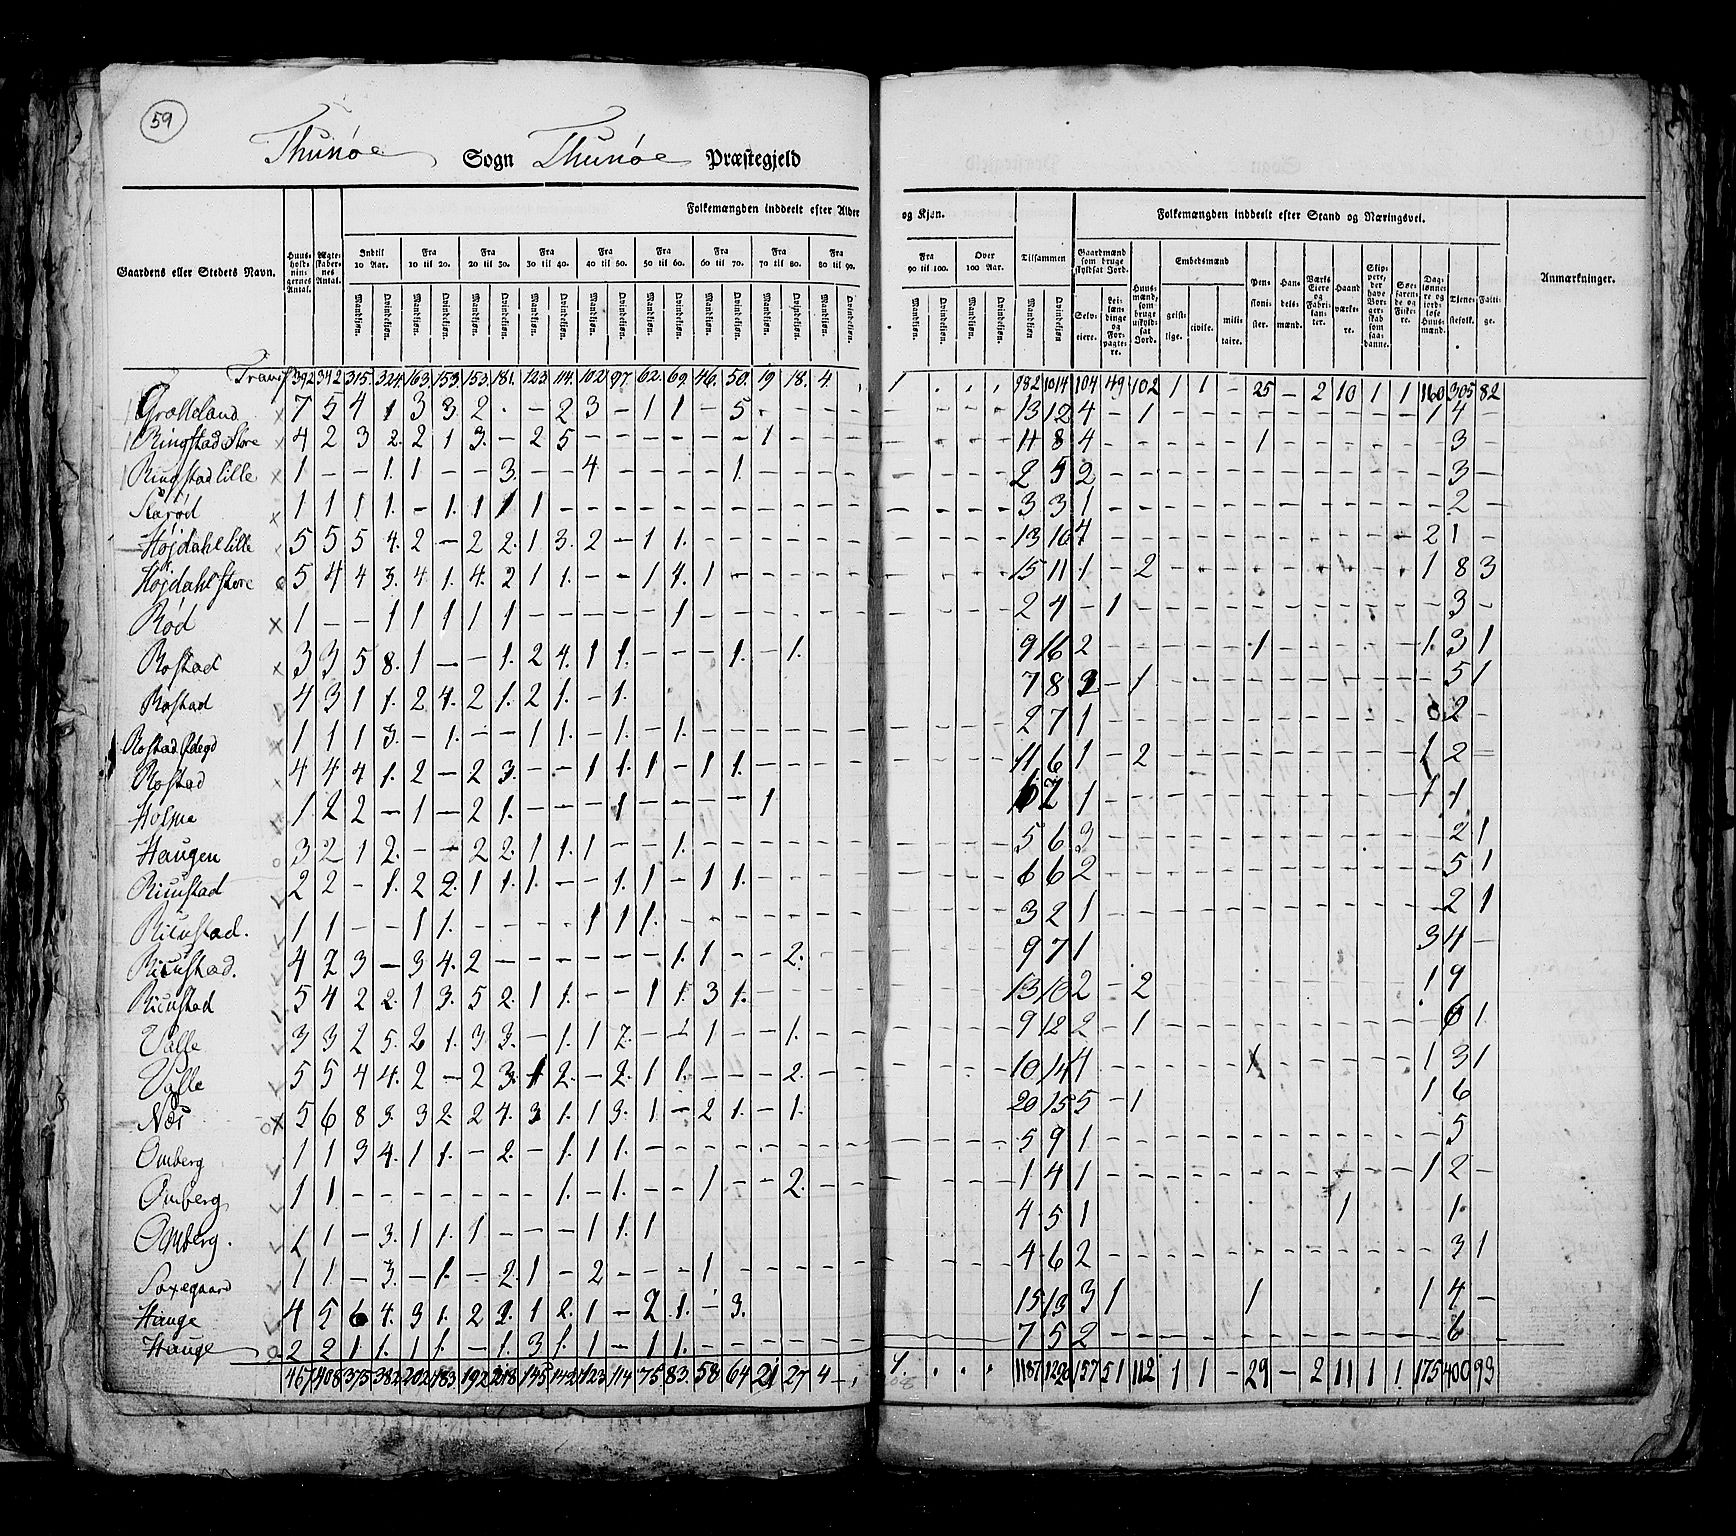 59
Thunøe Sogn Thunøe Præstegjeld
Gaardens eller Stedets Navn. Huusholdningernes Antal. Ægteskabernes Antal. Folkemængden inddeelt efter Alder og Kjøn. Tilsammen Folkemængden inddeelt efter Stand og Næringsvei. Anmærkninger.
Indtil 10 Aar. Fra 10 til 20. Fra 20 til 30. Fra 30 til 40. Fra 40 til 50. Fra 50 til 60. Fra 60 til 70. Fra 70 til 80. Fra 80 til 90. Fra 90 til 100. Over 100 Aar.
Gaardmænd som bruge skyldsat Jord. Huusmænd, som bruge uskyldsat Jord. Embedsmænd Pensionister. Handelsmænd. Værks Eiere og Fabrikanter. Haandværkere. Slippere, der have Borgerskab som saadanne. Søefarende og Fiskere. Dagslønnere og jordløse Huusmænd. Tjenestefolk. Fattige.
Mandkjøn. Qvindekjøn. Mandkjøn. Qvindekjøn. Mandkjøn. Qvindekjøn. Mandkjøn. Qvindekjøn. Mandkjøn. Qvindekjøn. Mandkjøn. Qvindekjøn. Mandkjøn. Qvindekjøn. Mandkjøn. Qvindekjøn. Mandkjøn. Qvindekjøn. Mandkjøn. Qvindekjøn. Mandkjøn. Qvindekjøn. Mandkjøn Qvindekjøn Selveiere. Leilændinge og Forpagtere. geistlige. civile. militaire.
Transp 392 342 315. 324. 163. 153. 153. 181. 123 114. 102 97. 62. 69. 46. 50. 19 18. 4. 1 982 1014 104 49 102 1 1 - 25 - 2 10 1 1 160 305 82
7 5 4 1 3 3. 2 - - 2 3 - 1 1 - 5 13 12 4 - 1 1 4
Ringstad Store 4 2 3 2. 2 1 3. - 2 5 1 11 8 4 1 3
Ringstad lille 1 - - 1. 1 3. 4 1. 2 5 2 3
1 1 1 1. - 1. 1 1 1 3 3 1 2
Højdahl lille 5 5 5 4. 2 - 2 2. 1 3. 2 - 1 1. 13 10 4 2 1
Højdahl Store 5 4 4 3. 4 1. 4. 2 1 1. - - 1 4. 1 15 11 1 - 2 1 8 3
Rød 1 - - 1 1 1 1 1 1 2 4 - 1 3
Rostad 3 3 5 8. 1 - - 1. 2 4. 1 1. 1. 1. 9 16 2 1 1. 3 1
Rostad 4 3 1 1. 2 4. 2 1. 2 1. - 1. 7 8 - 1 5 1
Rostad Ødegd 1 1 1 3. - 1. - - 1 1. - 1. - 1. 2 7 1 2
Rostad 4 4 4 1. 2 - 2 3. - - 1 1. 1 - 1 1. 11 6 1 - 2 1 2
Holme 1 2 2 - 1 - 2 1. 1 1 1 1 1
Haugen 3 2 1 2. - - 2 2. 1 1. 1 1. 5 6 3 2 1
2 2 - 1. 2 2. 1 1. 1. 1. 1 - 1 1. 6 6 2 5 1
1 1 - - 1 1. 1 1 1. 3 2 1 2 1
4 2 3 - 3 4. 2 1. 1 2. 9 7 1 3 4
5 4 2 2. 1 3. 5 2. 1 1. - - 1 1. 3 1. 13 10 2 - 2 1 9
Valle 3 3 2 5. 2 1. 3 3. - 1. 1 2. 1 1. 9 12 2 - 1 6 1
Valle 5 5 4 4. 2 - 2 3. 1 2. - 2. 1 1. 2. 10 14 1 3 1
Næs 5 6 8 3. 3 2. 2 4. 3 1. 1 3. 1 - 2 1. - 1. 20 15 5 - 1 1 6
Omberg 1 1 3 4. 1 1. - 2. - 1. 1 1. 5 9 1 5
Omberg 1 1 1. - 1. - - 1 2. 1 4 1 1 2
Omberg. 1 1 - 3. 1 1. 1 - - - 1 1. 1 4 5 1 1 1.
Saxegaard 1 1 - 3. - 1. - 2. 1 - 2 1 4 6 2 3 1
Hauge 4 5 6 4. 3 1. 2 2. 1 2. 1 - 2 1. - 3. 15 13 3 1 1 1 4
Hauge 2 2 1 1. 1 1. - 1. 3 1. 1 - 1 1. 7 5 2 6
467 408 375 382 202 183. 192 218 145 142 123 114 75 83. 58 64 21 27 4 1. 1187 1220 157 51 112 1 1 - 29 - 2 11 1 1 175 400 93